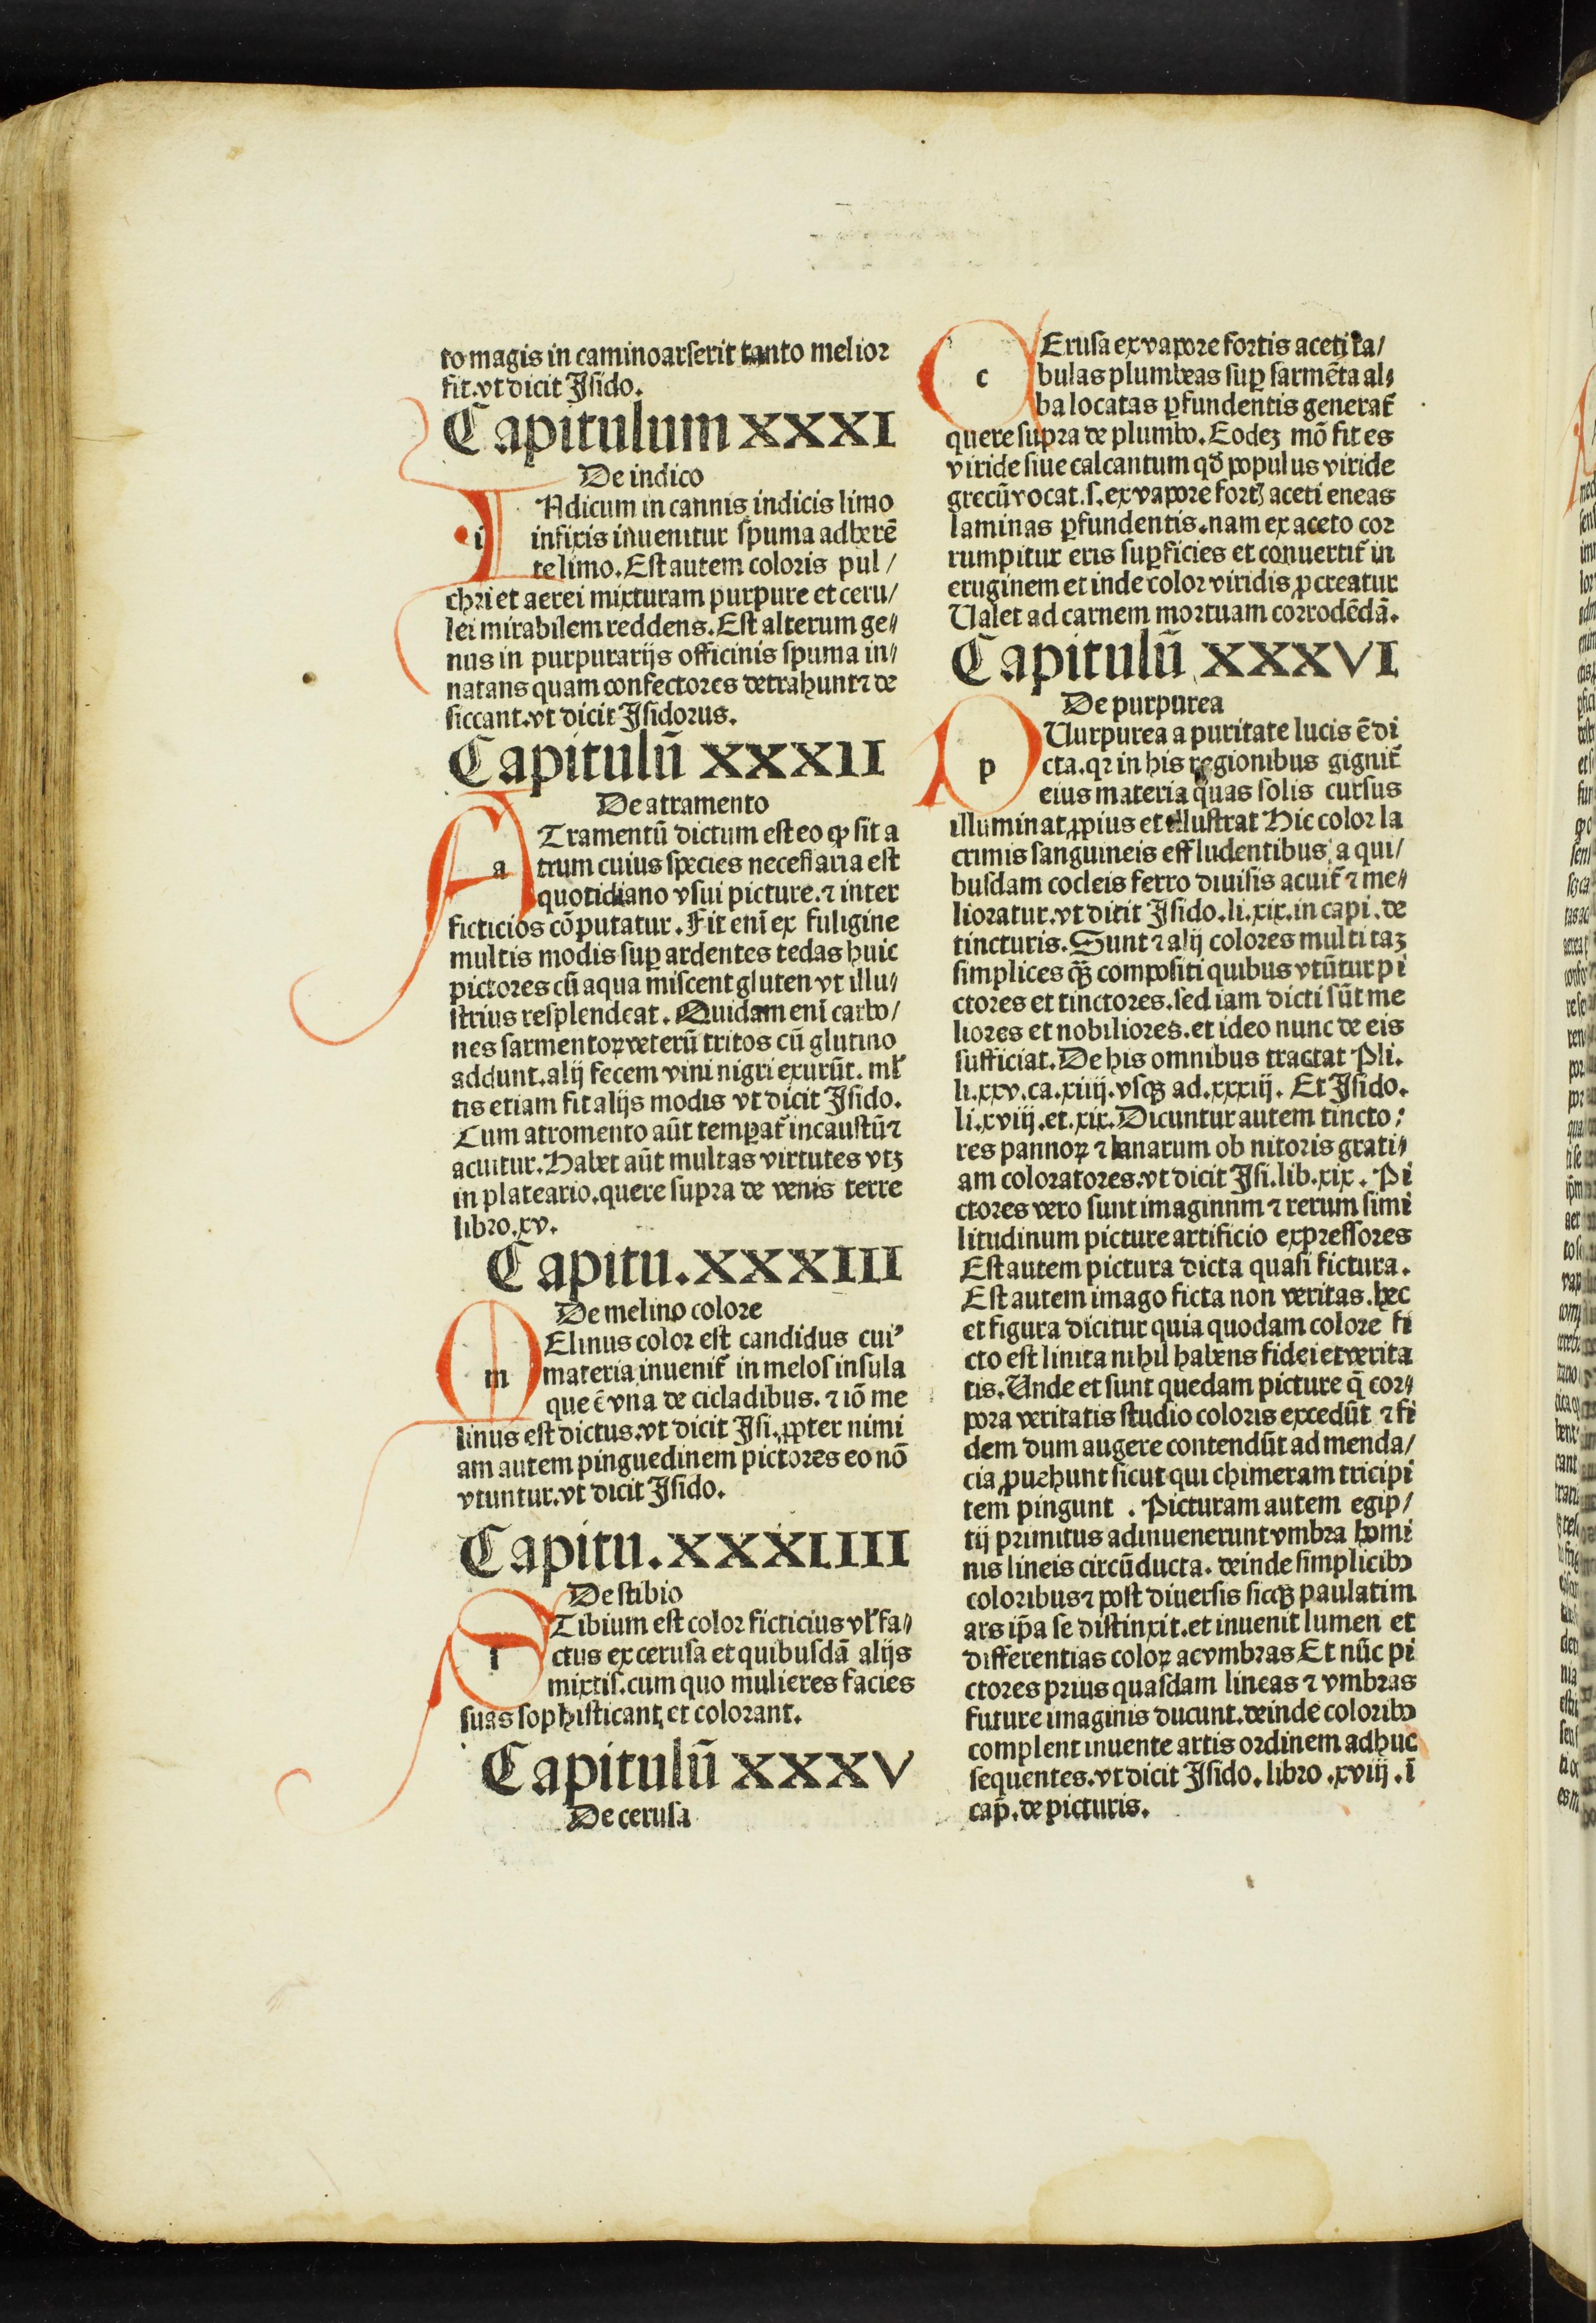 to magis in caminoarserit tanto melior
fit.vt dicit Isido.
Capitulum XXXI
De indico
INdicum in cannis indicis limo
infixis inuenitur spuma adherẽ
te limo. Est autem coloris pul/
chri et aerei mixturam purpure et ceru/
lei mirabilem reddens. Est alterum ge⸗
nus in purpurarijs officinis spuma in⸗
natans quam confectores detrahunt ⁊ de
siccant.vt dicit Isidorus.
Capitulũ XXXII
De atramento
ATramentũ dictum est eo ꝙ sit a
trum cuius species necessaria est
quotidiano vsui picture.⁊ inter
ficticios cõputatur. Fit enĩ ex fuligine
multis modis suꝑ ardentes tedas huic
pictores cũ aqua miscent gluten vt illu⸗
strius resplendeat. Quidam enĩ carbo/
nes sarmentoꝝ veterũ tritos cũ glutino
addunt.alij fecem vini nigri exurũt. ml̃
tis etiam fit alijs modis vt dicit Isido.
Cum atromento aũt temꝑat̃ incaustũ ⁊
acuitur. Habet aũt multas virtutes vtꝫ
in plateario.quere supra de venis terre
libro.xv.
Capitu. XXXIII
De melino colore
MElinus color est candidus cuiꝰ
materia inuenit̃ in melos insula
que ẽ vna de cicladibus. ⁊ iõ me
linus est dictus.vt dicit Isi. ꝓpter nimi
am autem pinguedinem pictores eo nõ
vtuntur.vt dicit Isido.
Capitu. XXXIIII
De stibio
STibium est color ficticius vl̃ fa⸗
ctus ex cerusa et quibusdã alijs
mixtis.cum quo mulieres facies
suas sophisticant et colorant.
Capitulũ XXXV
De cerusa
CErusa ex vapore fortis aceti ta/
bulas plumbeas suꝑ sarmẽta al⸗
ba locatas ꝑfundentis generat̃
quere supra de plumbo. Eodeꝫ mõ fit es
viride siue calcantum qđ populus viride
grecũ vocat.s.ex vapore fortꝭ aceti eneas
laminas ꝑfundentis.nam ex aceto cor
rumpitur eris suꝑficies et conuertit̃ in
eruginem et inde color viridis ꝓcreatur
Ualet ad carnem mortuam corrodẽdã.
Capitulũ XXXVI
De purpurea
PUurpurea a puritate lucis ẽ di
cta.qꝛ in his regionibus gignit̃
eius materia quas solis cursus
illuminat ꝓpius et illustrat Hic color la
crimis sanguineis effludentibus a qui/
busdam cocleis ferro diuisis acuit̃ ⁊ me⸗
lioratur.vt dicit Isido.li.xix.in capi.de
tincturis. Sunt ⁊ alij colores multi taꝫ
simplices qꝫ̃ compositi quibus vtũtur pi
ctores et tinctores.sed iam dicti sũt me
liores et nobiliores.et ideo nunc de eis
sufficiat. De his omnibus tractat Pli.
li.xxv.ca.xiiij.vsqꝫ ad.xxxiij. Et Isido.
li.xviij.et.xix. Dicuntur autem tincto⸗
res pannoꝝ ⁊ lanarum ob nitoris grati⸗
am coloratores.vt dicit Isi.lib.xix. Pi
ctores vero sunt imaginnm ⁊ rerum simi
litudinum picture artificio expressores
Est autem pictura dicta quasi fictura.
Est autem imago ficta non veritas. hec
et figura dicitur quia quodam colore fi
cto est linita nihil habens fidei et verita
tis. Unde et sunt quedam picture q̃ cor⸗
pora veritatis studio coloris excedũt ⁊ fi
dem dum augere contendũt ad menda/
cia ꝓuehunt sicut qui chimeram tricipi
tem pingunt . Picturam autem egip/
tij primitus adinuenerunt vmbra homi
nis lineis circũducta. deinde simplicibꝰ
coloribus ⁊ post diuersis sicqꝫ paulatim
ars ip̃a se distinxit.et inuenit lumen et
differentias coloꝝ acvmbras Et nũc pi
ctores prius quasdam lineas ⁊ vmbras
future imaginis ducunt.deinde coloribꝰ
complent inuente artis ordinem adhuc
sequentes.vt dicit Isido.libro.xviij.ĩ
cap̃.de picturis.